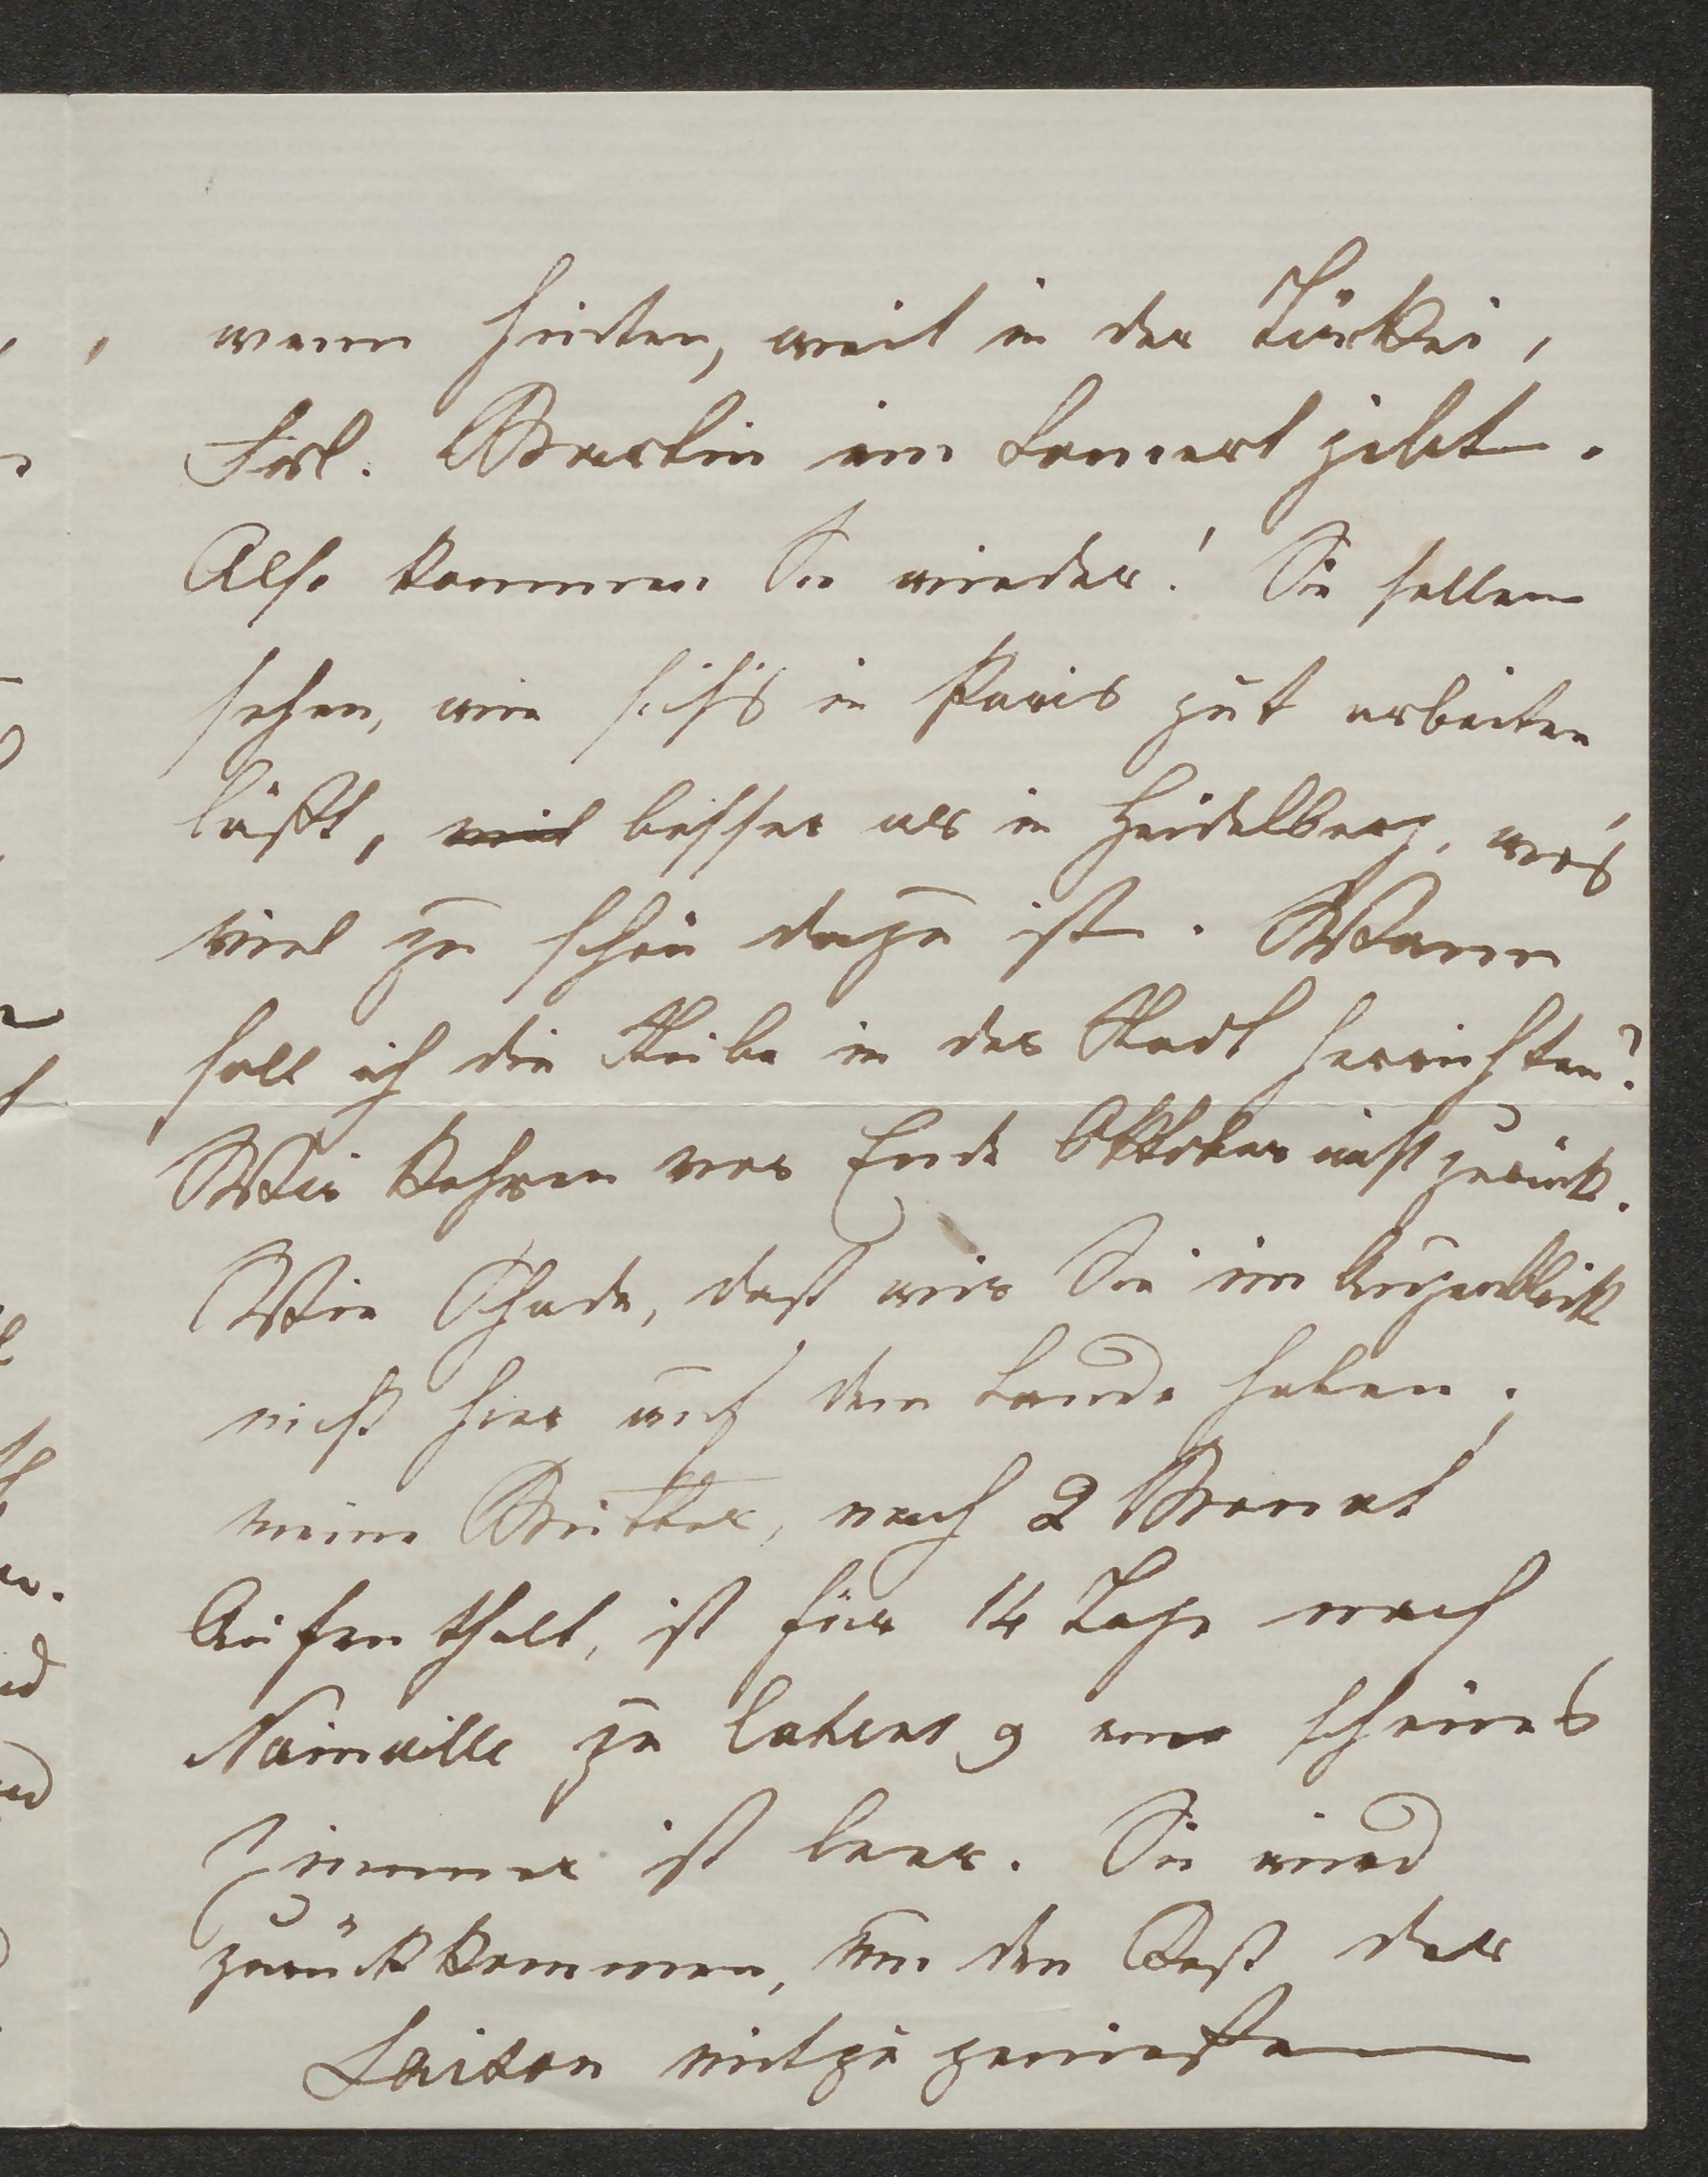 wenn hinten, weit in der Türkei,
Frl. Martin ein Concert giebt.
Also kommen Sie wieder! Sie sollen
sehen, wie sich's in Paris gut arbeiten
läßt, besser als in Heidelberg, wo's
viel zu schön dazu ist. Wann
soll ich die Stube in der Stadt herrichten?
Wir kehren vor Ende Oktober nicht zurück.
Wie Schade, daß wir Sie im Augenblick
nicht hier auf dem Lande haben;
meine Mutter, nach 2 Monat
Aufenthalt, ist für 14 Tage nach
Nainville zu schönes
Zimmer ist leer. Sie wird
zurückkommen, um den Rest der
Saison mitzugenießen